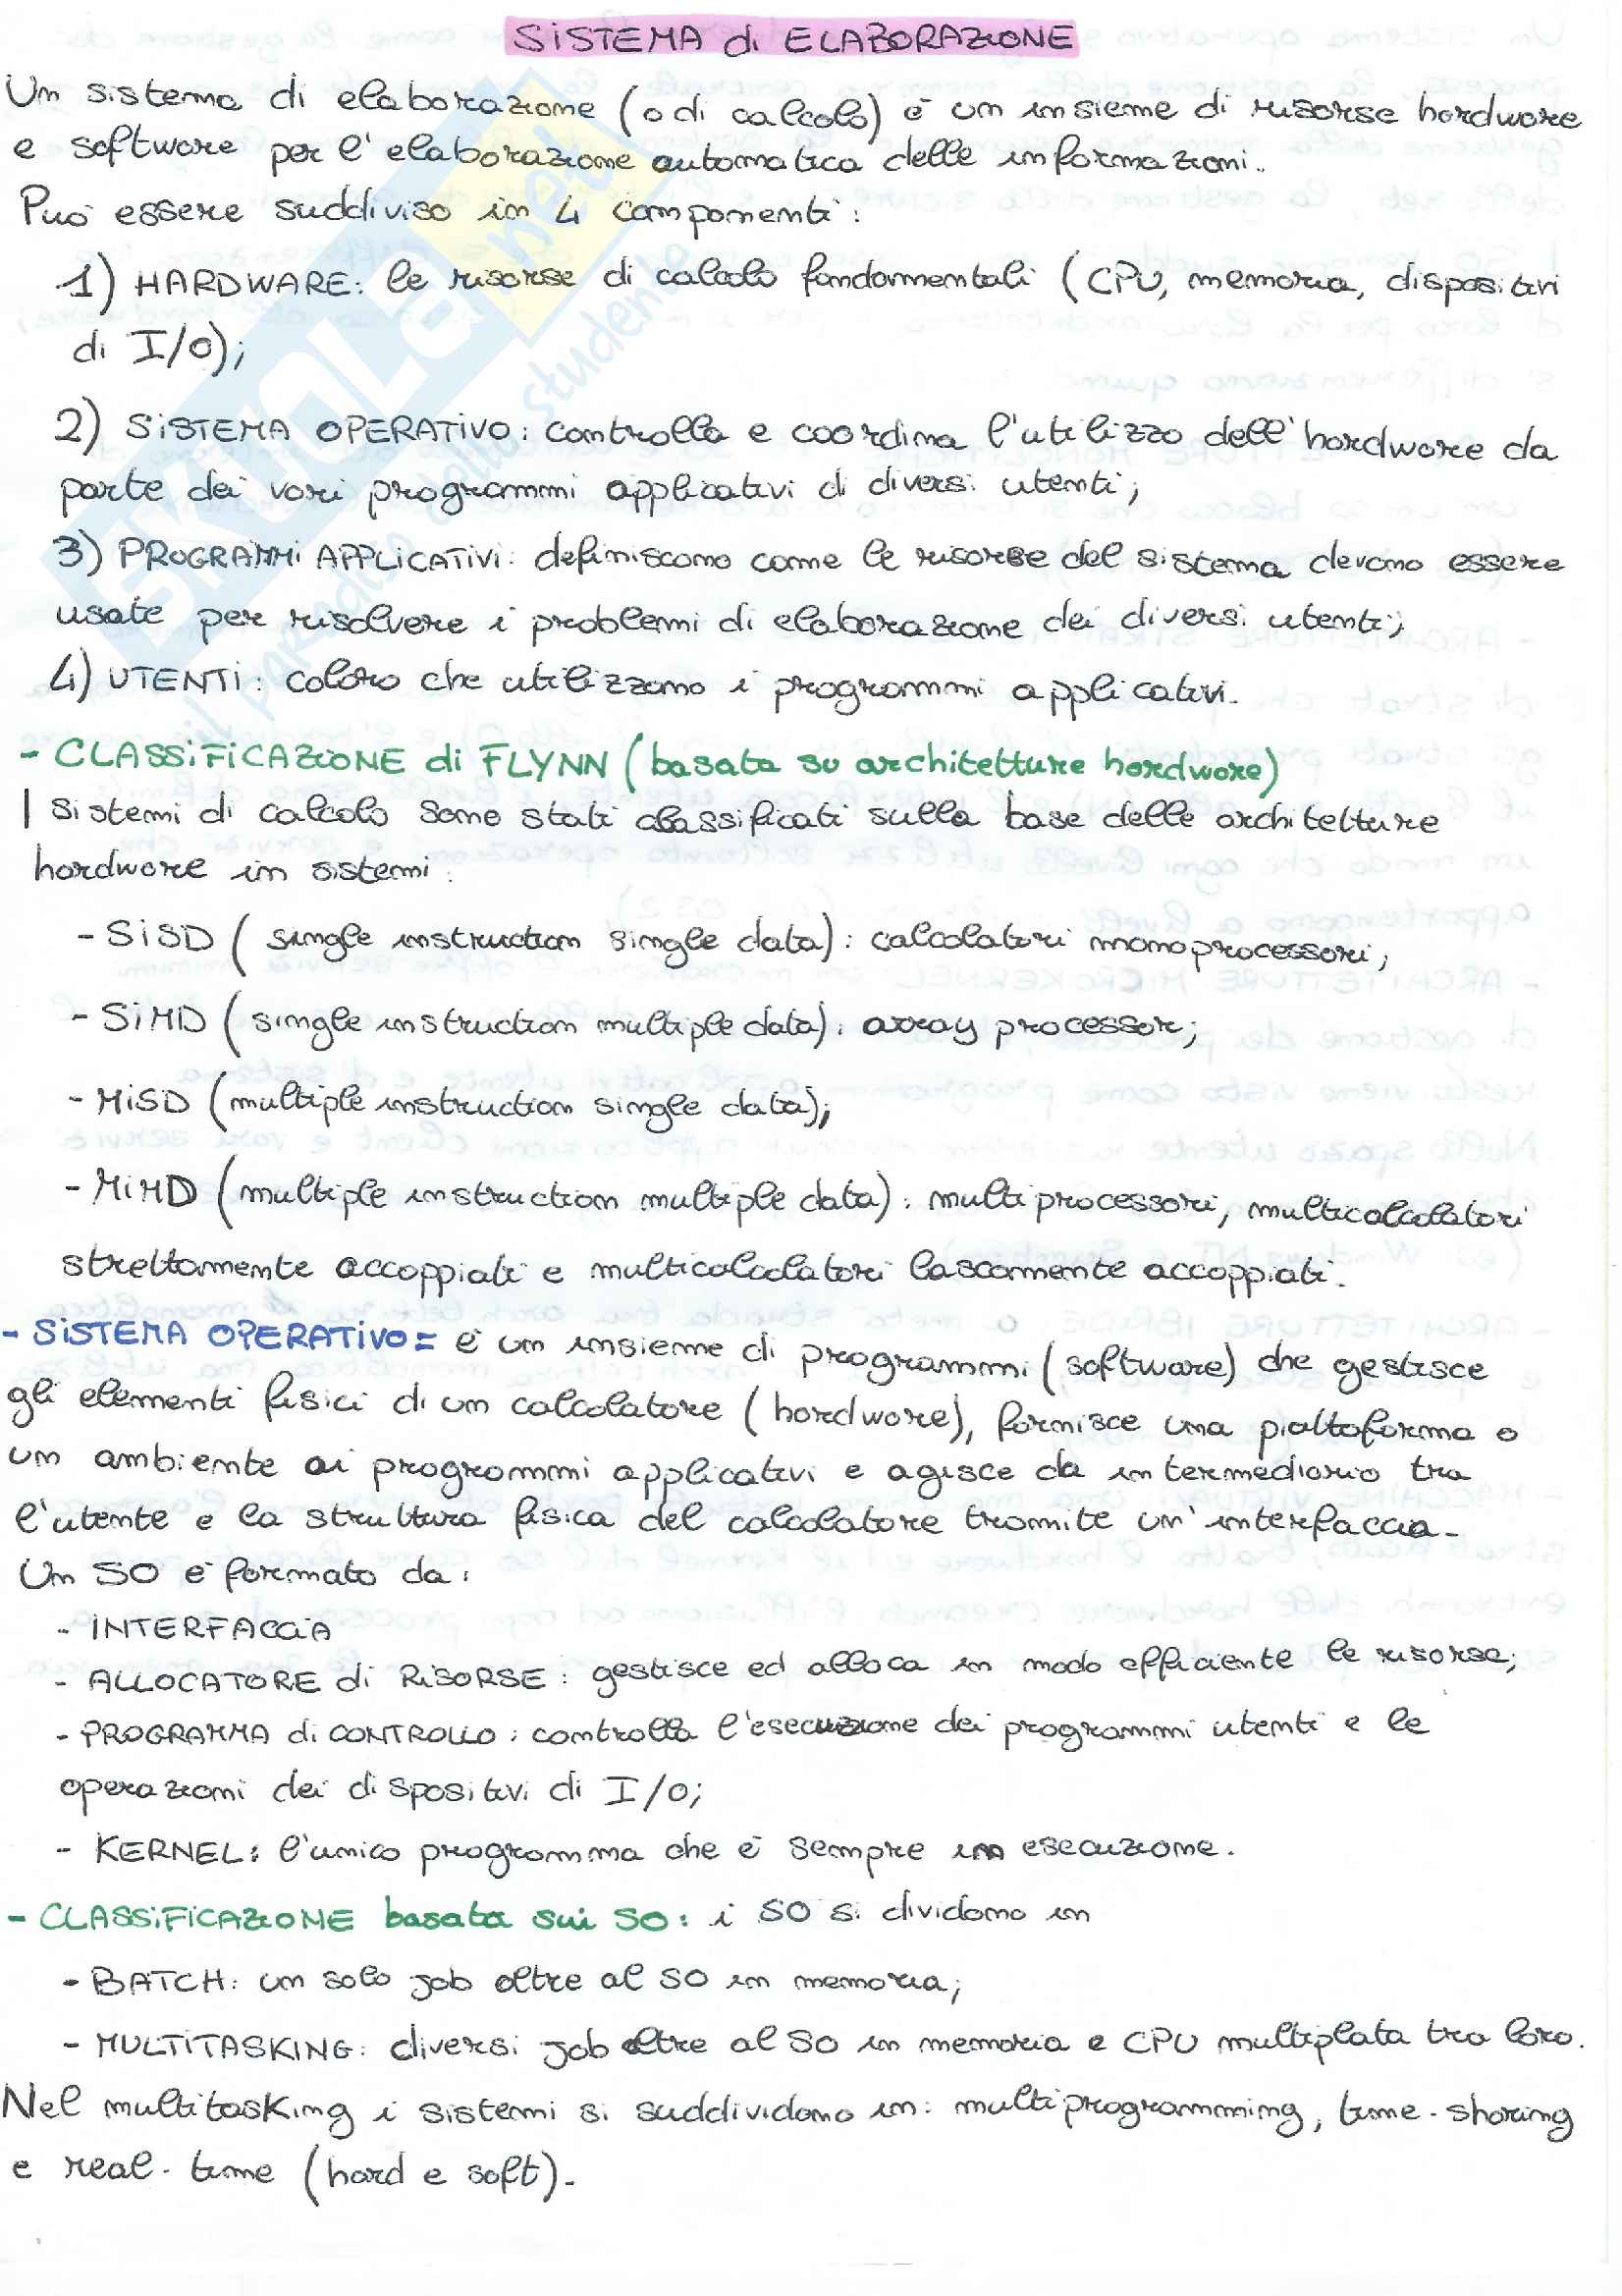 SISTEMA di ELABORAZIONE
Un sistema di elaborazione (o di calcolo) è un insieme di risorse hardware
e software per l'elaborazione automatica delle informazioni.
Può essere suddiviso in 4 componenti:
1) HARDWARE: le risorse di calcolo fondamentali (CPU, memoria, dispositivi
di I/O);
2) SISTEMA OPERATIVO: controlla e coordina l'utilizzo dell'hardware da
parte dei vari programmi applicativi di diversi utenti;
3) PROGRAMMI APPLICATIVI: definiscono come le risorse del sistema devono essere
usate per risolvere i problemi di elaborazione dei diversi utenti;
4) UTENTI: coloro che utilizzano i programmi applicativi.
- CLASSIFICAZIONE di FLYNN (basata su architetture hardware)
I sistemi di calcolo sono stati classificati sulla base delle architetture
hardware in sistemi:
- SISD (single instruction single data): calcolatori monoprocessori;
- SIMD (single instruction multiple data): array processor;
- MISD (multiple instruction single data);
- MIMD (multiple instruction multiple data): multiprocessori, multicalcolatori
strettamente accoppiati e multicalcolatori lascamente accoppiati.
- SISTEMA OPERATIVO= è un insieme di programmi (software) che gestisce
gli elementi fisici di un calcolatore (hardware), fornisce una piattaforma o
un ambiente ai programmi applicativi e agisce da intermediario tra
l'utente e la struttura fisica del calcolatore tramite un'interfaccia.
Un SO è formato da:
- INTERFACCIA
- ALLOCATORE di RISORSE: gestisce ed alloca in modo efficiente le risorse;
- PROGRAMMA di CONTROLLO: controlla l'esecuzione dei programmi utenti e le
operazioni dei dispositivi di I/O;
- KERNEL: l'unico programma che è sempre in esecuzione.
- CLASSIFICAZIONE basata sui SO: i SO si dividono in
- BATCH: un solo job oltre al SO in memoria;
- MULTITASKING: diversi job oltre al SO in memoria e CPU multiplata tra loro.
Nel multitasking i sistemi si suddividono in: multiprogramming, time-sharing
e real-time (hard e soft).
SKUOLA.net
il paradiso dello studente